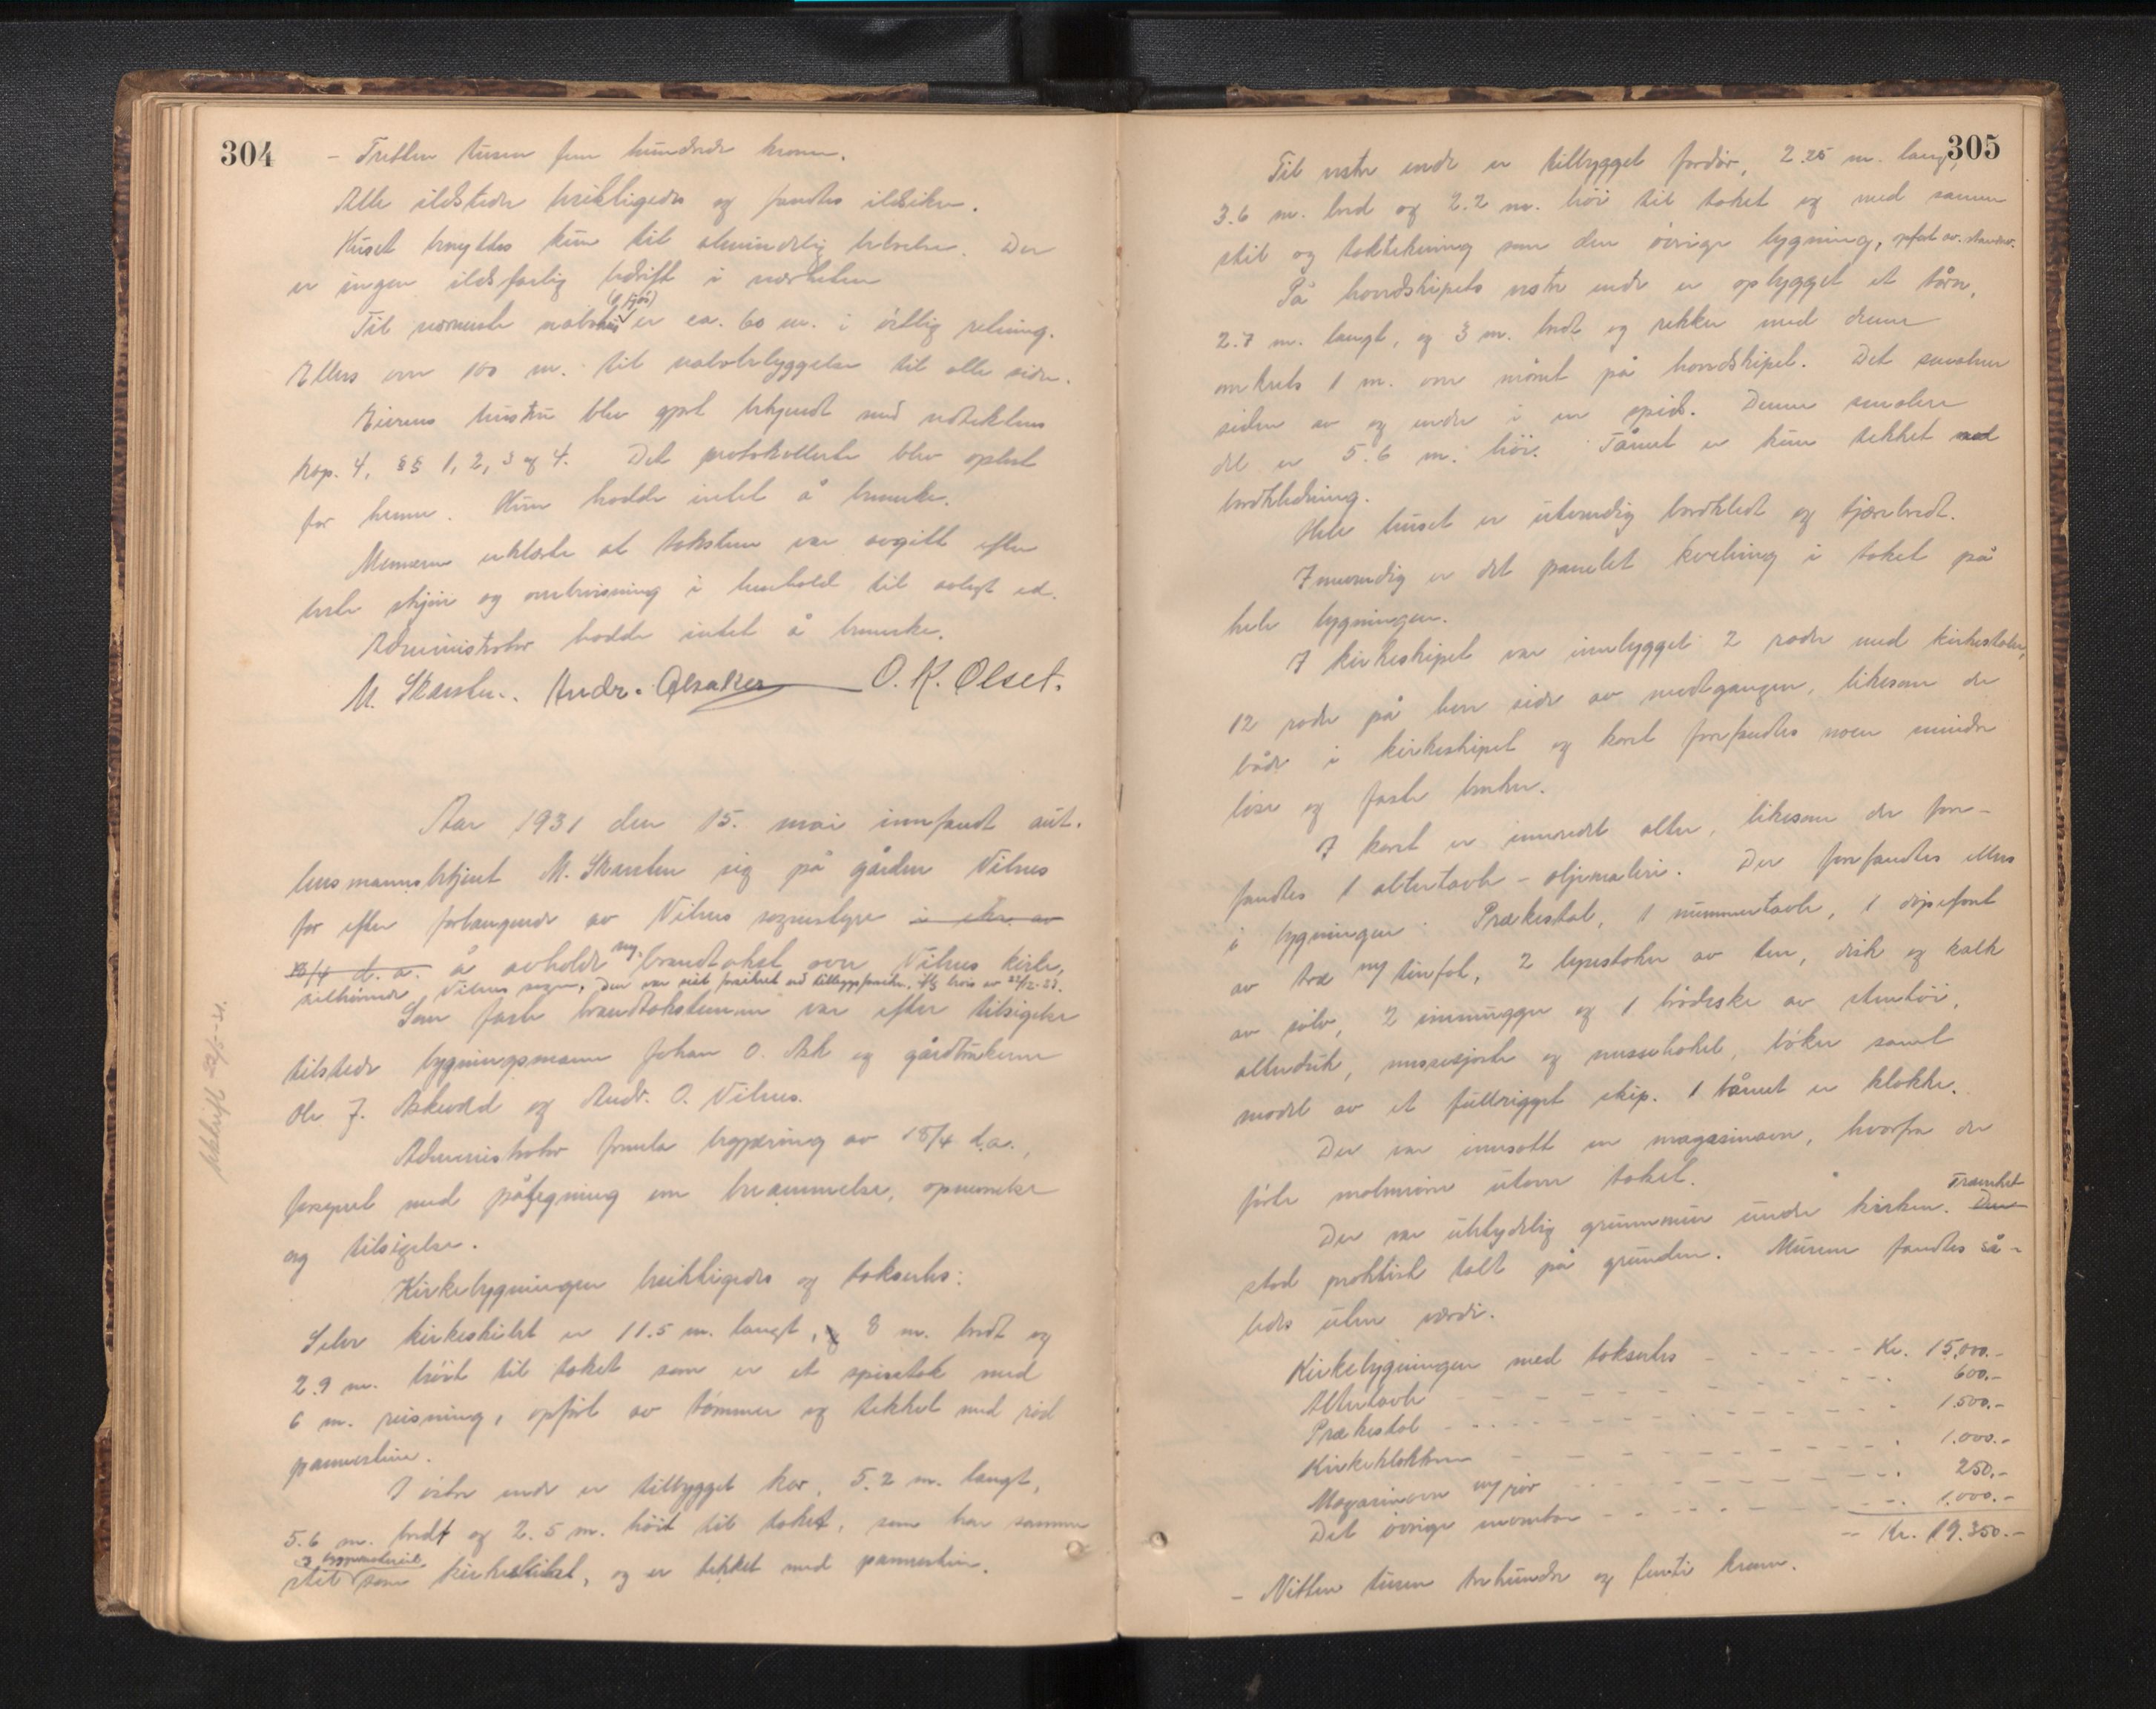 304
- Tretten tusen fem hundrede kroner.
Alle ildsteder besiktigedes og fandtes ildsikre.
Huset benyttes kun til almindelig beboelse. Der
er ingen ildsfarlig bedrift i nærheten
(1 fjøs)
Til nærmeste nabohus er ca. 60 m. i østlig retning.
Ellers over 100 m. til nabobebyggelse til alle sider.
Eierens hustru blev gjort bekjendt med vedtektens
kap. 4, §§ 1, 2, 3 og 4. Det protokollerte blev oplest
for henne. Hun hadde intet å bemerke.
Mennene erklærte at taksten var avgitt efter
beste skjøn og overbevisning i henhold til avlagt ed.
Administrator hadde intet å bemerke.
M. Skarsten. Andr. Aksaker O. K. Olset.
Aar 1931 den 15. mai innfandt aut.
lensmannsbetjent M. Skarsten sig på gården Vilnes
for efter forlangende av Vilnes sognestyre i skr. av
18/4 d. a. å avholde ny brandtakst over Vilnes kirke,
tilhørende Vilnes sogn. Der var sist forsikret ved tilleggsforsikr.
Som faste brandtakstmenn var efter tilsigelse
tilstede bygningsmann Johan O. Ask og gårdbrukerne
Ole J. Askvold og Andr. O. Vilnes.
Administrator fremla begjæring av 18/4 d.a.,
forsynt med påtegning om berammelse, opnevnelse
og tilsigelse.
Kirkebygningen besiktigedes og takseres:
Selve kirkeskibet er 11.5 m. langt, 8 m. bredt og
2.9 m. høit til taket som er et spisstak med
6 m. reisning, opført av tømmer og tekket med rød
pannestein.
I østre ende er tilbygget kor, 5.2 m. langt,
5.6 m. bredt og 2.5 m. høit til taket, som har samme
stil som kirkeskibet, og er tekket med pannestein.
Utskrift 22/5-31.
305
Til vestre ende er tilbygget fordør, 2.25 m. lang,
3.6 m. bred og 2.2 m. høi til taket og med samme
stil og taktekning som den øvrige bygning, opført av
På hovedskipets vestre ende er opbygget et tårn,
2.7 m. langt, og 3 m. bredt og rekker med denne
omkrets 1 m. over mønet på hovedskipet. Det smalner
siden av og ender i en spids. Denne smalere
del er 5.6 m. høi. Tårnet er kun tekket med
bordkledning.
Hele huset er utvendig bordkledt og tjærebredt.
Innvendig er det panelet kvelving i taket på
hele bygningen.
I kirkeskipet var innbygget 2 rader med kirkestoler,
12 rader på hver side av midtgangen, likesom der
både i kirkeskipet og koret forefandtes noen mindre
løse og faste benker.
I koret er innredet alter, likesom der fore-
fandtes 1 altertavle - oljemaleri. Der forefandtes ellers
i bygningen: Prækestol, 1 nummertavle, 1 døpefont
av træ m/ tinfat, 2 lysestaker av tin, disk og kalk
av sølv, 2 vinmugger og 1 brødeske av stentøi,
alterduk, messeskjorte og messehakel, bøker samt
modell av et fullrigget skip. I tårnet er klokke.
Der var innsatt en magasinovn, hvorfra der
førte malmrør utover taket.
Der var ubetydelig grunnmur under kirken. Træverket
stod praktisk talt på grunden. Muren fandtes så-
ledes uten verdi.
Kirkebygningen med takseres - - - - - Kr. 15,000.-
Altertavle - - - - - 600.-
Prækestol - - - - - 1.500.-
Kirkeklokken - - - - - 1.000.-
Magasinovn m/ rør - - - - - 250.-
Det øvrige inventar - - - - - 1.000.-
-- Kr. 19.350.--
- Nitten tusen trehundre og femti kroner.